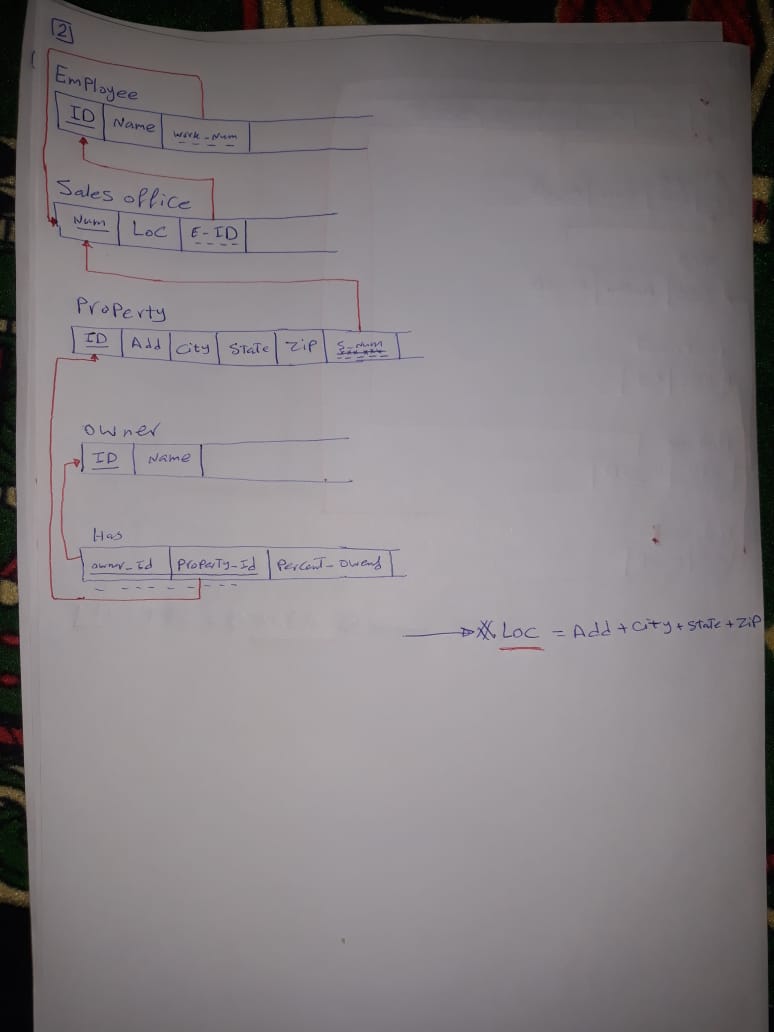 [2]
Employee
ID Name work_Num
Sales office
Num Loc E-ID
Property
ID Add City State Zip S_Num
owner
ID Name
Has
owner_Id Property_Id Percent_owend
Loc = Add + City + State + Zip